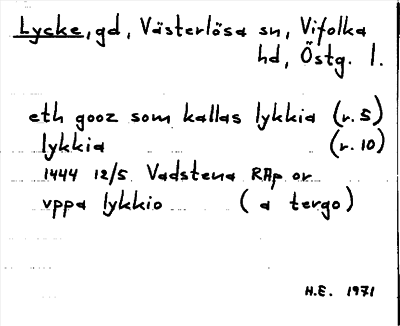 Lycke, gd, Västerlösa sn, Vifolka
hd, Östg. l.
eth gooz som kallas lykkia (r. 5)
lykkia (r. 10)
1444 12/5 Vadstena RAp or
vppa lykkio (a tergo)
H.E. 1971